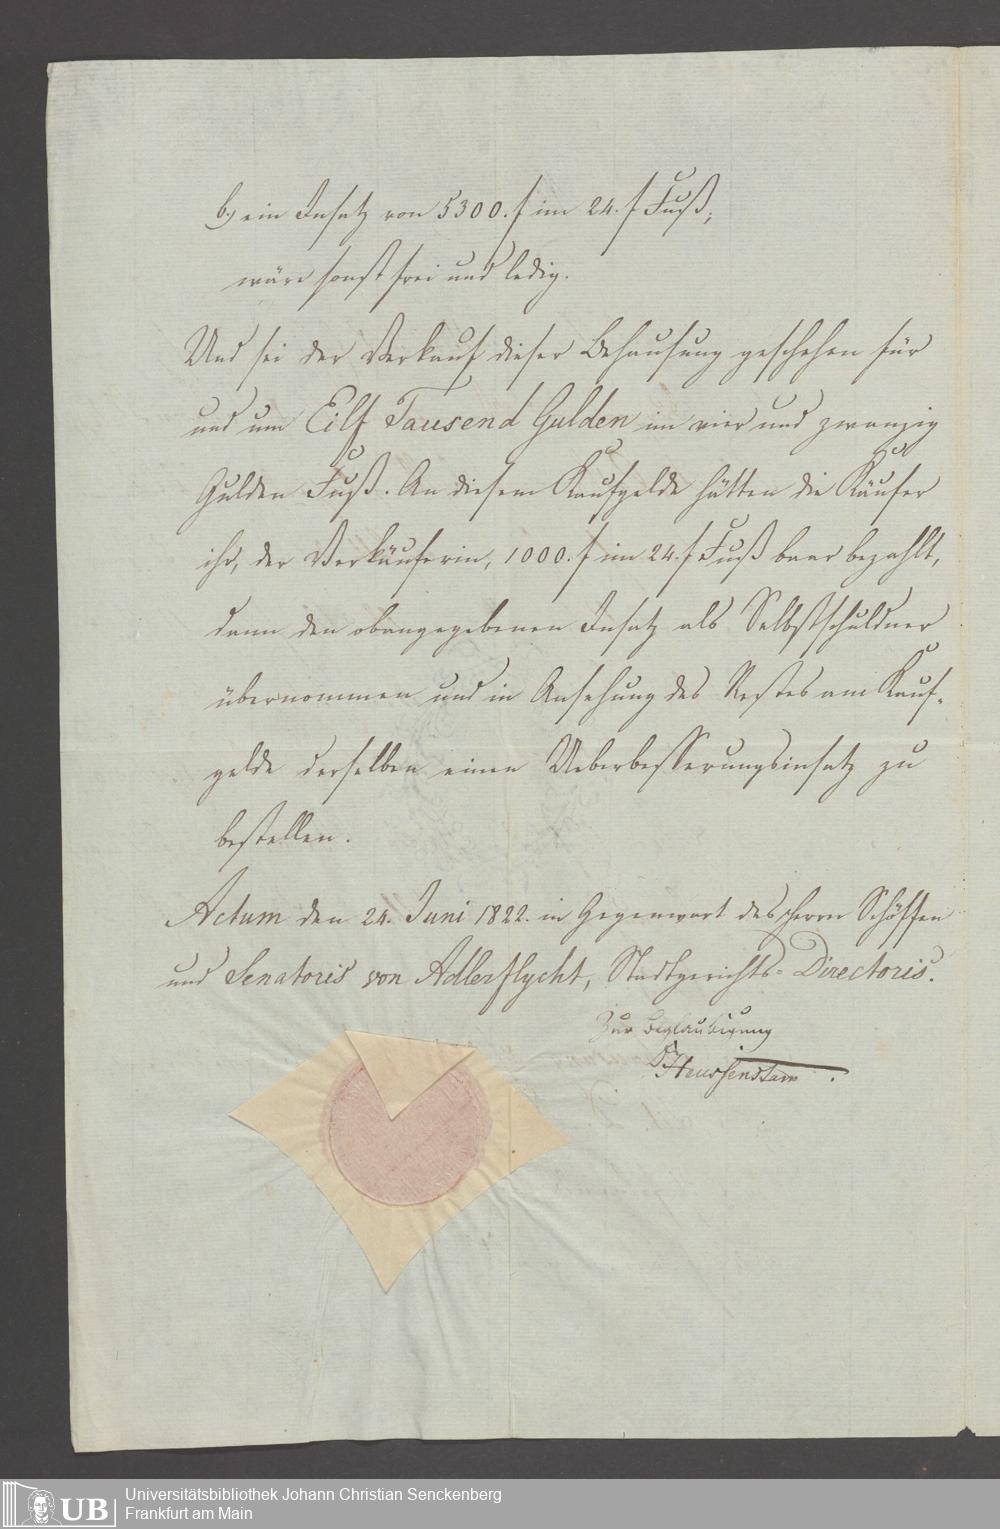 b.) ein Insatz von 5300. f im 24. f Fuß,
wäre sonst frei und ledig.
Und sei der Verkauf dieser Behausung geschehen für
und um Eilf Tausend Gulden im vier und zwanzig
Gulden Fuß. An diesem Kaufgelde hätten die Käufer
ihr, der Verkäuferin, 1000. f im 24. f Fuß baar bezahlt,
dann den obangegebenen Insatz als Selbstschuldner
übernommen und in Ansehung des Restes am Kauf-
gelde derselben einen Ueberbesserungsinsatz zu
bestellen.
Actum den 24. Juni 1822. in Gegenwart des Herrn Schöffen
und Senatoris von Adlerflycht, Stadtgerichts-Directoris.
Zur Beglaubigung
Heussenstam
UB
Universitätsbibliothek Johann Christian Senckenberg
Frankfurt am Main